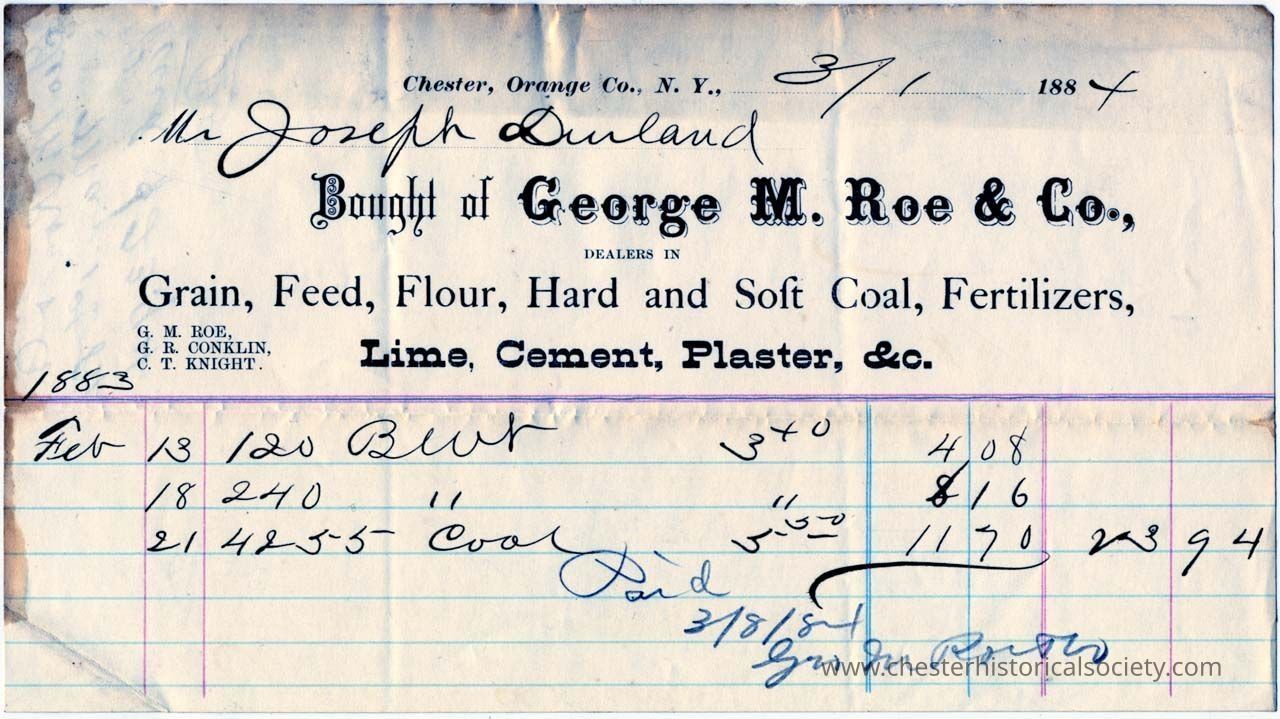 Chester, Orange Co., N. Y., 3/1 1884
Mr Joseph Durland
Bought of George M. Roe & Co.,
DEALERS IN
Grain, Feed, Flour, Hard and Soft Coal, Fertilizers,
G. M. ROE,
G. R. CONKLIN,
C. T. KNIGHT.
Lime, Cement, Plaster, &c.
1883
Feb 13 120 BWt 3 40 4 08
18 240 " " 8 16
21 4255 Coal 5 50 11 70 23 94
Paid
3/8/84
Geo M Roe & Co
www.chesterhistoricalsociety.com